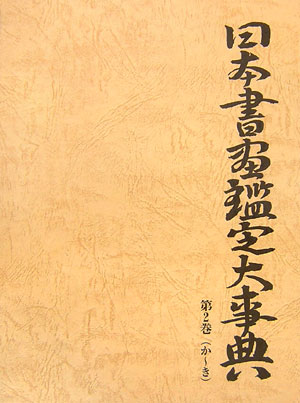 日本書画鑑定大事典
第2巻（か～き）